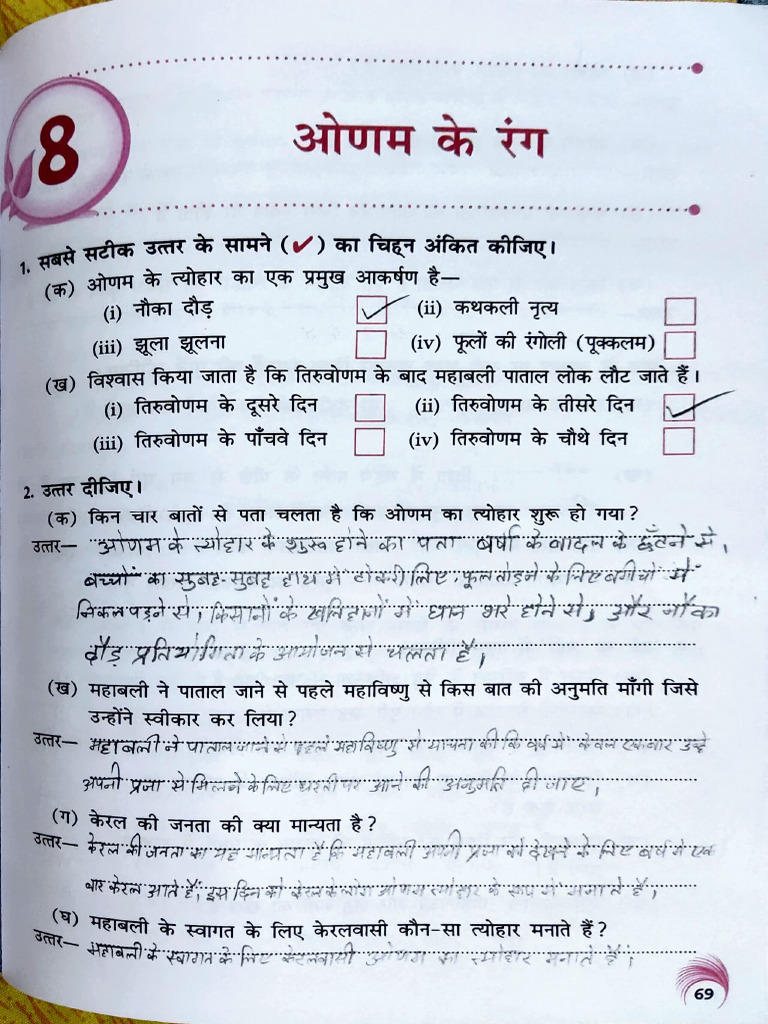 8
ओणम के रंग
1. सबसे सटीक उत्तर के सामने (✓) का चिह्न अंकित कीजिए।
(क) ओणम के त्योहार का एक प्रमुख आकर्षण है—
(i) नौका दौड़ ✓ (ii) कथकली नृत्य
(iii) झूला झूलना (iv) फूलों की रंगोली (पूक्कलम)
(ख) विश्वास किया जाता है कि तिरुवोणम के बाद महाबली पाताल लोक लौट जाते हैं।
(i) तिरुवोणम के दूसरे दिन (ii) तिरुवोणम के तीसरे दिन ✓
(iii) तिरुवोणम के पाँचवे दिन (iv) तिरुवोणम के चौथे दिन
2. उत्तर दीजिए।
(क) किन चार बातों से पता चलता है कि ओणम का त्योहार शुरू हो गया?
उत्तर— ओणम के त्योहार के शुरू होने का पता वर्षा के बादल के छँटने से,
बच्चों का सुबह-सुबह हाथ में टोकरी लिए फूल तोड़ने के लिए बगीचों में
निकल पड़ने से, किसानों के खलिहानों में धान भरे होने से, और नौका
दौड़ प्रतियोगिता के आयोजन से चलता है।
(ख) महाबली ने पाताल जाने से पहले महाविष्णु से किस बात की अनुमति माँगी जिसे
उन्होंने स्वीकार कर लिया?
उत्तर— महाबली ने पाताल जाने से पहले महाविष्णु से याचना की कि वर्ष में केवल एक बार उन्हे
अपनी प्रजा से मिलने के लिए धरती पर आने की अनुमति दी जाए।
(ग) केरल की जनता की क्या मान्यता है?
उत्तर— केरल की जनता का यह मान्यता है कि महाबली अपनी प्रजा को देखने के लिए वर्ष में एक
बार केरल आते हैं, इस दिन को केरल के लोग ओणम त्योहार के रूप में मनाते हैं।
(घ) महाबली के स्वागत के लिए केरलवासी कौन-सा त्योहार मनाते हैं?
उत्तर— महाबली के स्वागत के लिए केरलवासी ओणम का त्योहार मनाते हैं।
69